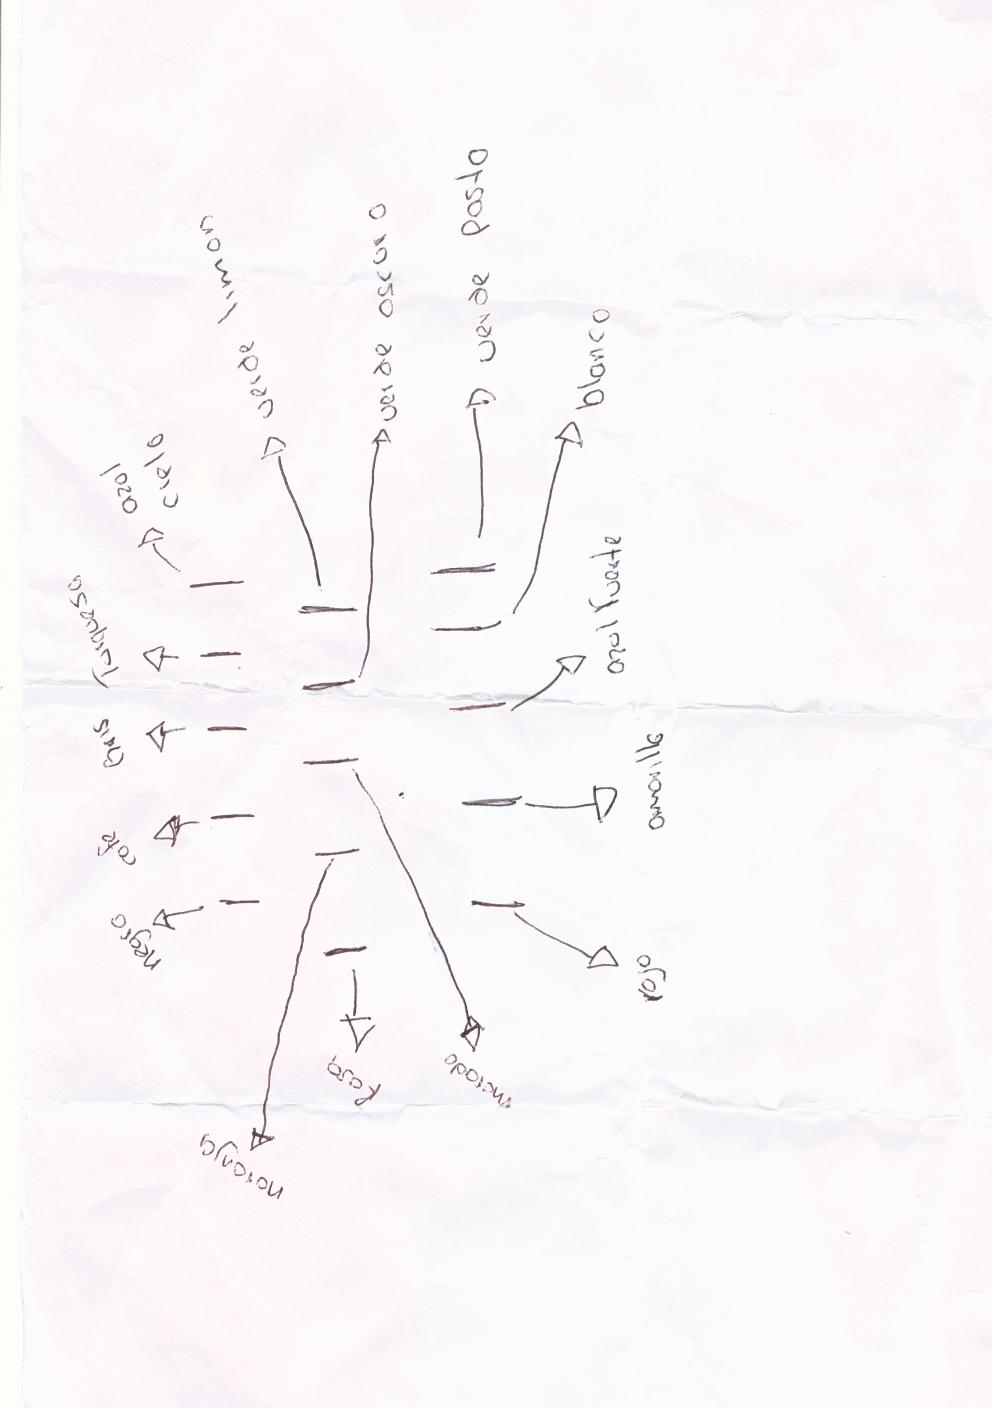 negro
café
Gris
Turquesa
azol
cielo
naranja
verde limon
Rosa
verde oscuro
morado
verde pasto
rojo
amarillo
azol fuerte
blanco